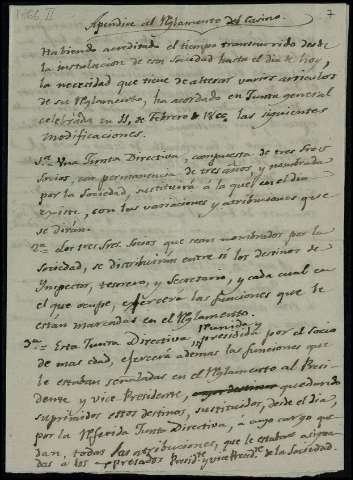 1866 II
7
Apendice al Reglamento del Casino.
Habiendo acreditado el tiempo transcurrido desde
la instalacion de esta Sociedad hasta el dia de hoy,
la necesidad que tiene de alterar varios articulos
de su Reglamento, ha acordado en Junta general
celebrada en 11, de Febrero las siguientes
modificaciones.
1ª Una Junta Directiva, compuesta de tres Sres
Socios, con permanencia de tres años, y nombrada
por la Sociedad, sustituirá à la que en el dia
existe, con las variaciones y atribuciones que
se dirán.
2ª Los tres Sres. Socios que sean nombrados por la
Sociedad, se distribuirán entre si los destinos de
Inspector, tesorero, y Secretario, y cada cual en
el que ocupe, ejercerá las funciones que le
están marcadas en el Reglamento.
3ª Esta Junta Directiva reunida y presidida por el Socio
de mas edad, ejercerá ademas las funciones que
le estaban señaladas en el Reglamento al Presi
dente y vice-Presidente, quedando
suprimidos estos destinos, sustituidos, desde el dia,
por la Referida Junta Directiva, à cuyo cargo que
dan, todas las atribuciones, que le estaban asigna
das à los espresados Presid.te y vice Presid.te de la Sociedad.